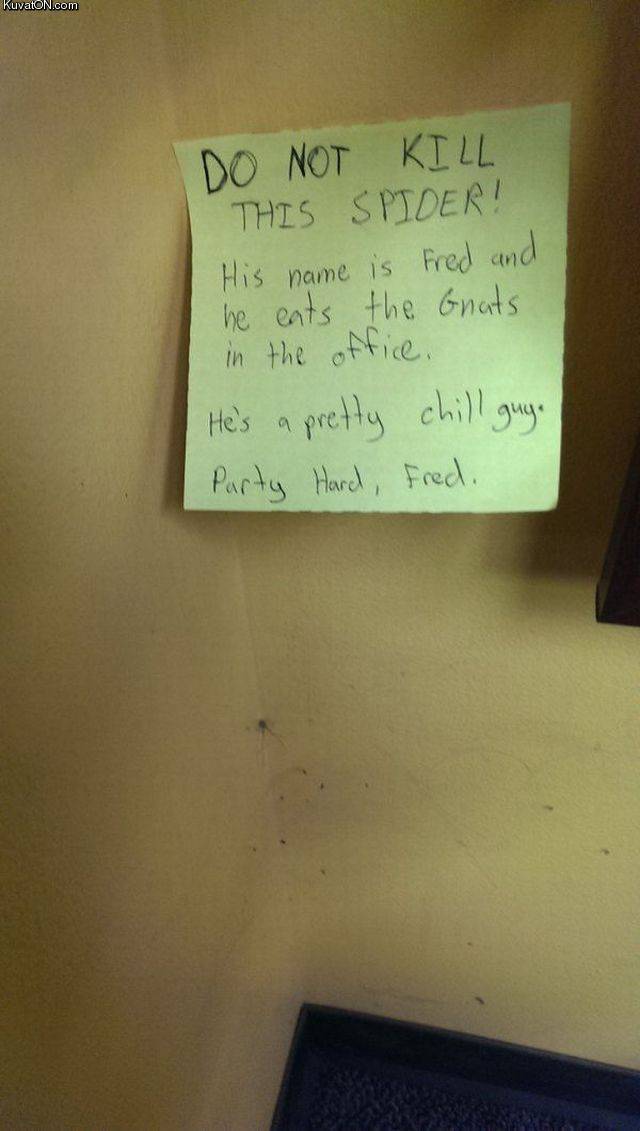 KuvatON.com
DO NOT KILL
THIS SPIDER!
His name is Fred and
he eats the Gnats
in the office.
He's a pretty chill guy.
Party Hard, Fred.